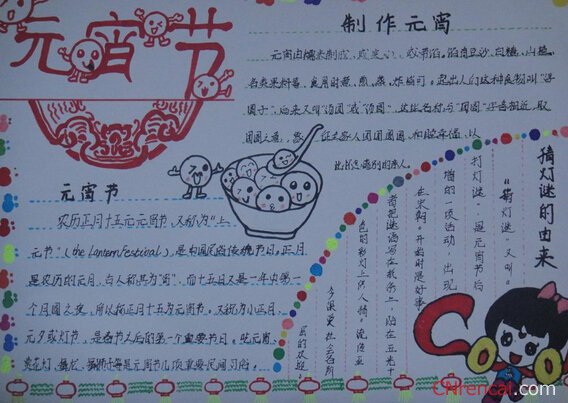 元宵节
制作元宵
元宵由糯米制成,或实心,或带馅。馅有豆沙、白糖、山楂、
各类果料等,食用时煮、煎、蒸、炸皆可。起初人们这种食物叫“浮
圆子”,后来又叫“汤团”或“汤圆”,这些名称与“团圆”字音相近,取
团圆之意,象征全家人团团圆圆,和睦幸福,以
此怀念离别的亲人。
元宵节
农历正月十五元元宵节,又称为“上
元节”(the Lantern Festival),是中国民俗传统节日。正月
是农历的元月,古人称其为“宵”,而十五日又是一年中第一
个月圆之夜,所以称正月十五为元宵节。又称为小正月、
元夕或灯节,是春节之后的第一个重要节日。吃元宵、
赏花灯、舞龙、舞狮子等是元宵节几项重要民间习俗。
猜灯谜的由来
“猜灯谜”又叫“
打灯谜”是元宵节后
增的一项活动,出现
在宋朝。开始时是好事
者把谜语写在纸条上,贴在五光
十色的彩灯上供人猜。
今深受社会各阶
层的欢迎。
COO
CNrencai.com